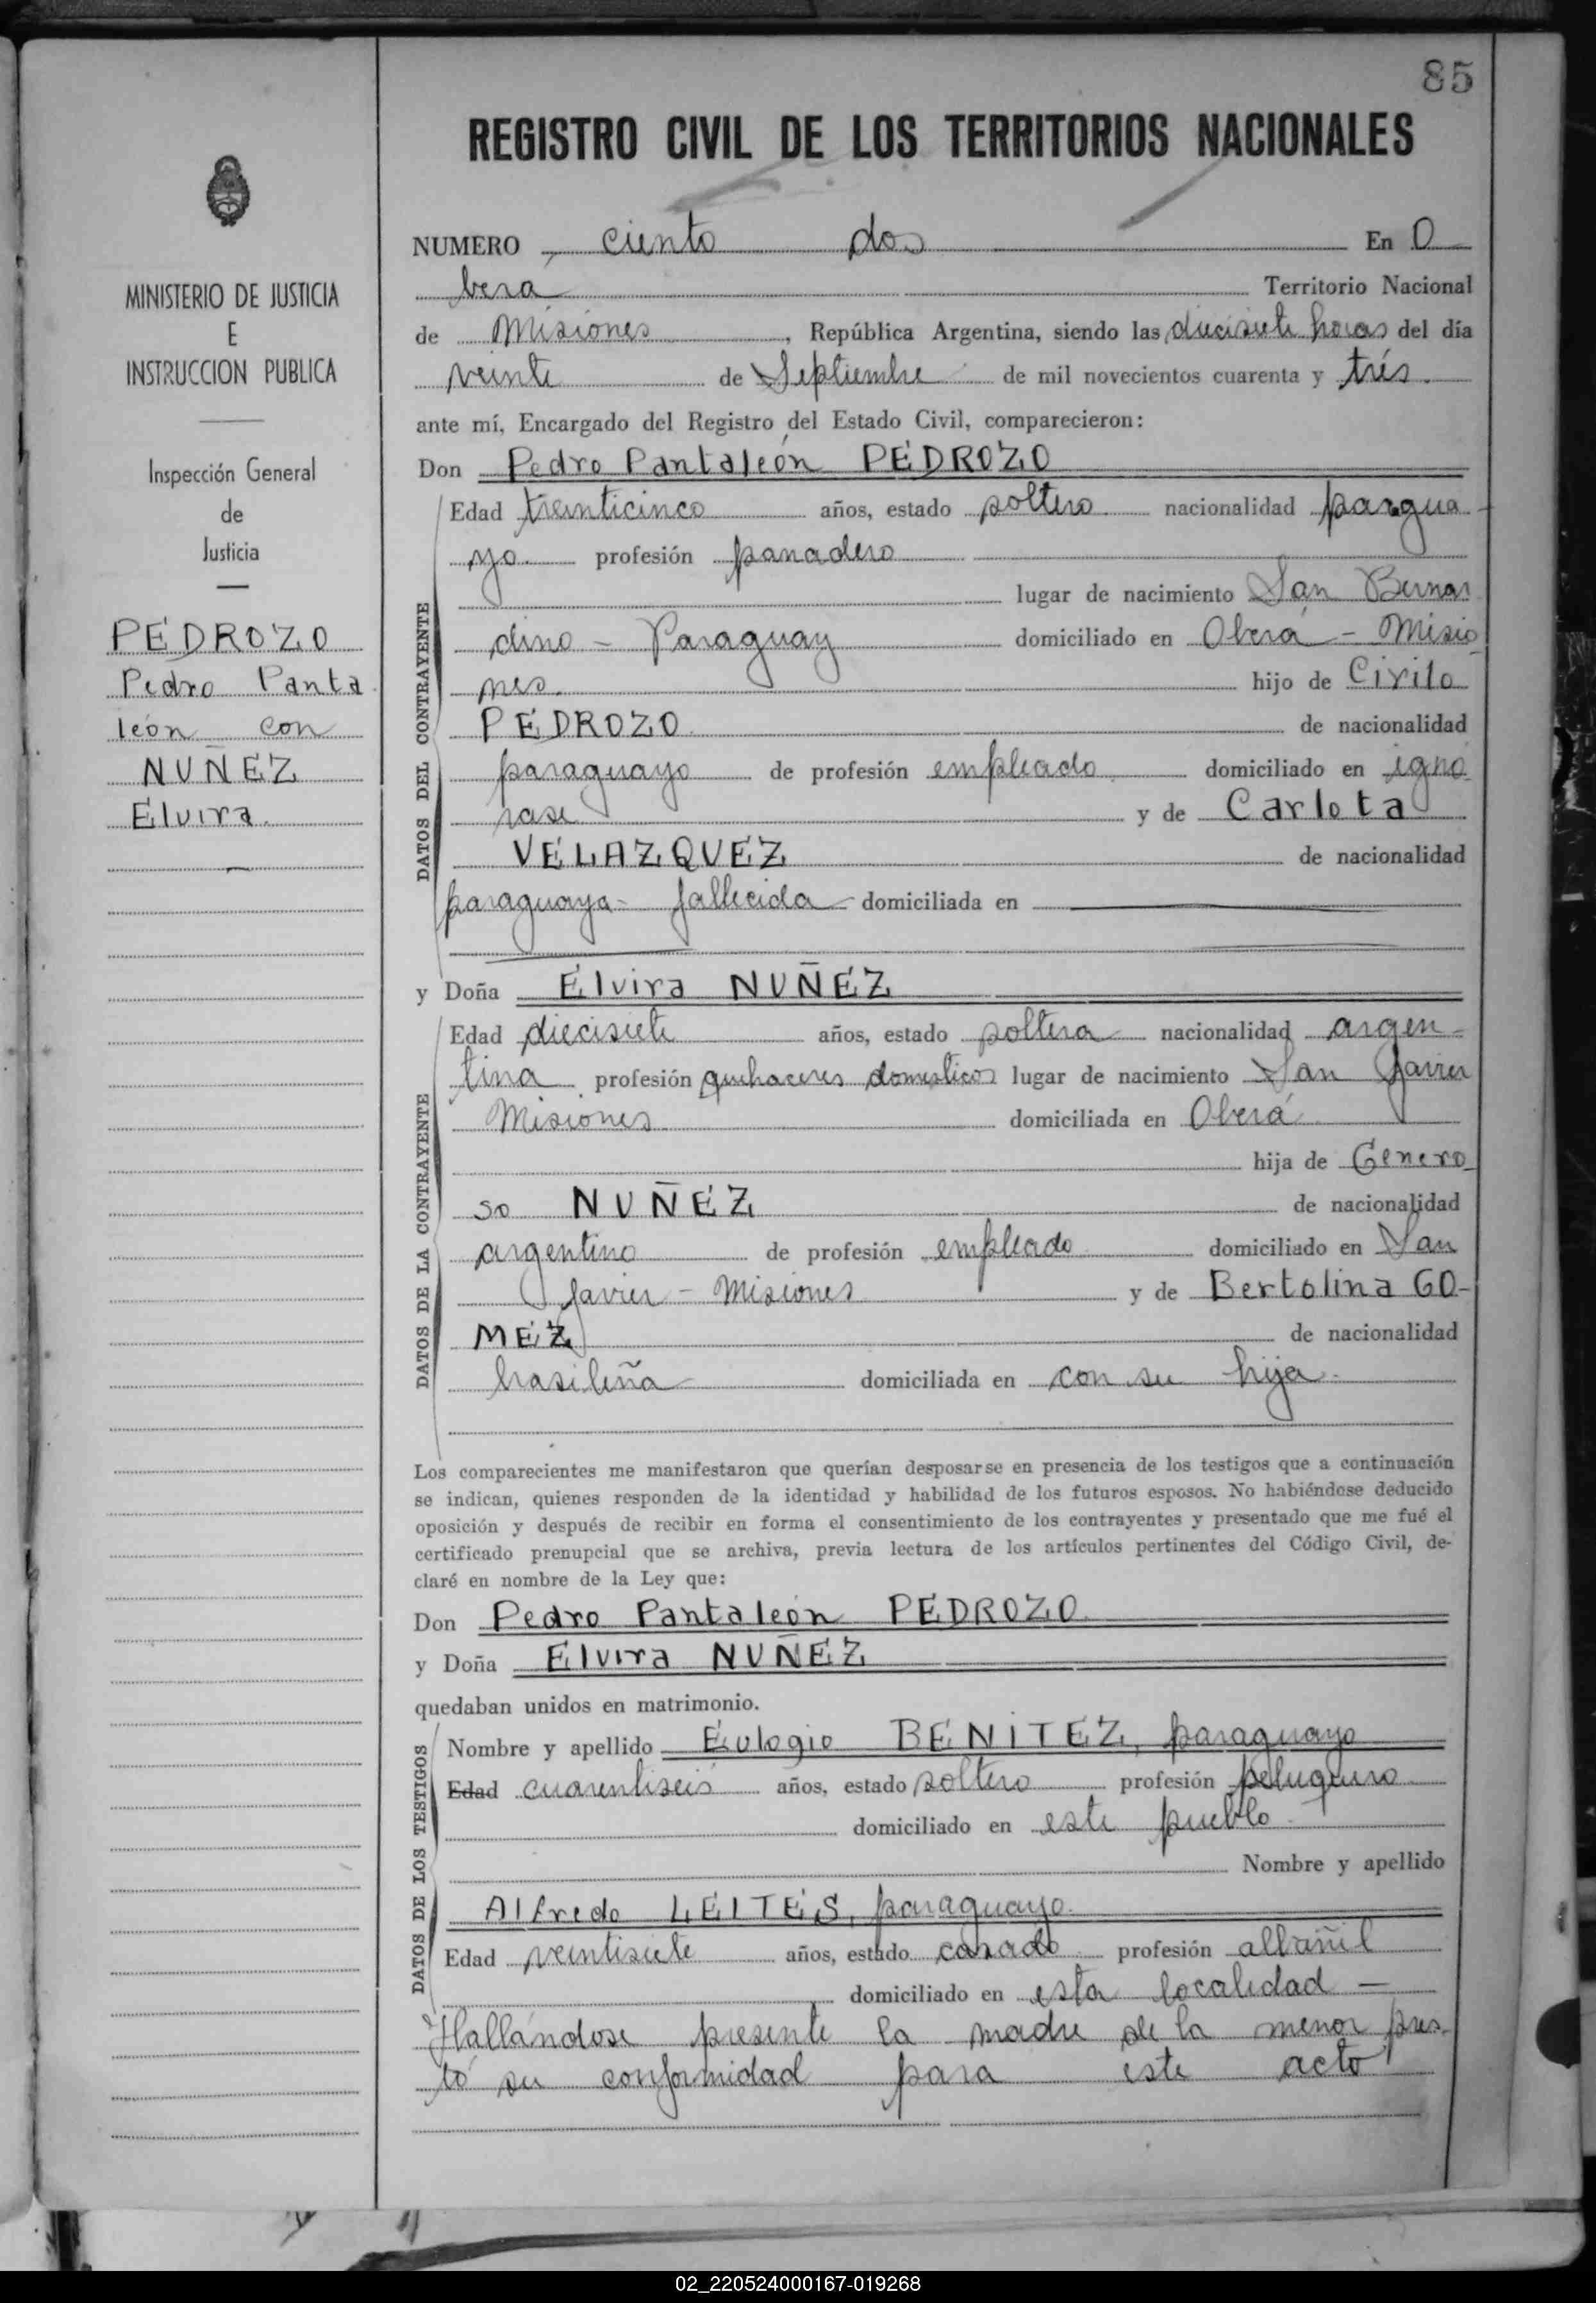 85
REGISTRO CIVIL DE LOS TERRITORIOS NACIONALES
MINISTERIO DE JUSTICIA
E
INSTRUCCION PUBLICA
Inspección General
de
Justicia
PEDROZO
Pedro Panta
león con
NUÑEZ
Elvira.
NUMERO ciento dos En O
berá Territorio Nacional
de Misiones, República Argentina, siendo las diecisiete horas del día
veinte de Septiembre de mil novecientos cuarenta y trés.
ante mí, Encargado del Registro del Estado Civil, comparecieron:
Don Pedro Pantaleón PEDROZO
DATOS DEL CONTRAYENTE
Edad treinticinco años, estado soltero nacionalidad paragua
yo. profesión panadero
lugar de nacimiento San Bernar
dino - Paraguay domiciliado en Oberá - Misio
nes. hijo de Cirilo
PEDROZO de nacionalidad
paraguayo de profesión empleado domiciliado en igno
rase y de Carlota
VELAZQUEZ de nacionalidad
paraguaya - fallecida - domiciliada en
y Doña Elvira NUÑEZ
DATOS DE LA CONTRAYENTE
Edad diecisiete años, estado soltera nacionalidad argen-
tina profesión quehaceres domesticos lugar de nacimiento San Javier
Misiones domiciliada en Oberá
hija de Genero
so NUÑEZ de nacionalidad
argentino de profesión empleado domiciliado en San
Javier - Misiones y de Bertolina GO-
MEZ de nacionalidad
brasileña domiciliada en con su hija.
Los comparecientes me manifestaron que querían desposarse en presencia de los testigos que a continuación
se indican, quienes responden de la identidad y habilidad de los futuros esposos. No habiéndose deducido
oposición y después de recibir en forma el consentimiento de los contrayentes y presentado que me fué el
certificado prenupcial que se archiva, previa lectura de los artículos pertinentes del Código Civil, de-
claré en nombre de la Ley que:
Don Pedro Pantaleón PEDROZO
y Doña Elvira NUÑEZ
quedaban unidos en matrimonio.
DATOS DE LOS TESTIGOS
Nombre y apellido Eulogio BENITEZ, paraguayo
Edad cuarentiseis años, estado soltero profesión peluquero
domiciliado en este pueblo.
Nombre y apellido
Alfredo LEITES, paraguayo.
Edad veintisiete años, estado casado profesión albañil
domiciliado en esta localidad -
Hallándose presente la madre de la menor pres
tó su conformidad para este acto
02_220524000167-019268